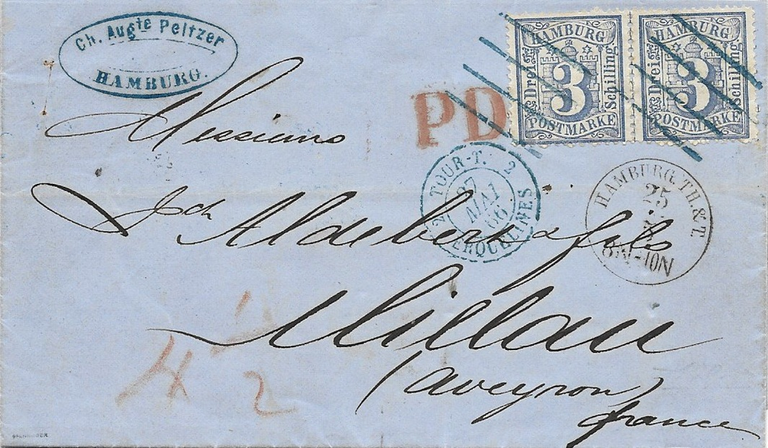 Ch. Augte Peltzer
HAMBURG.
HAMBURG
Drei
3
Schilling
POSTMARKE
HAMBURG
Drei
3
Schilling
POSTMARKE
PD
2 TOUR-T. 2
27
MAI
66
ERQUELINES
HAMBURG TH.&T.
25
8N-10N
Messieurs
Aldebert & fils
Millau
(Aveyron)
france
1
2